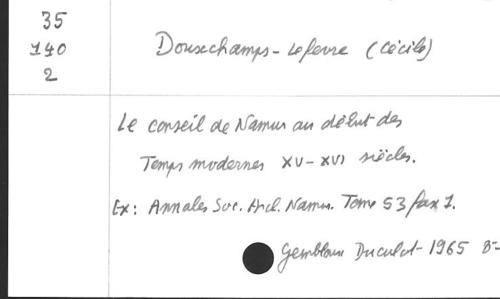 35
140
2
Douxchamps-Lefevre (Cécile)
Le conseil de Namur au début des
Temps modernes XV-XVI siècles.
Ex: Annales Soc. Arch. Namur. Tome 53 fax 1.
Gembloux Duculot-1965 B-